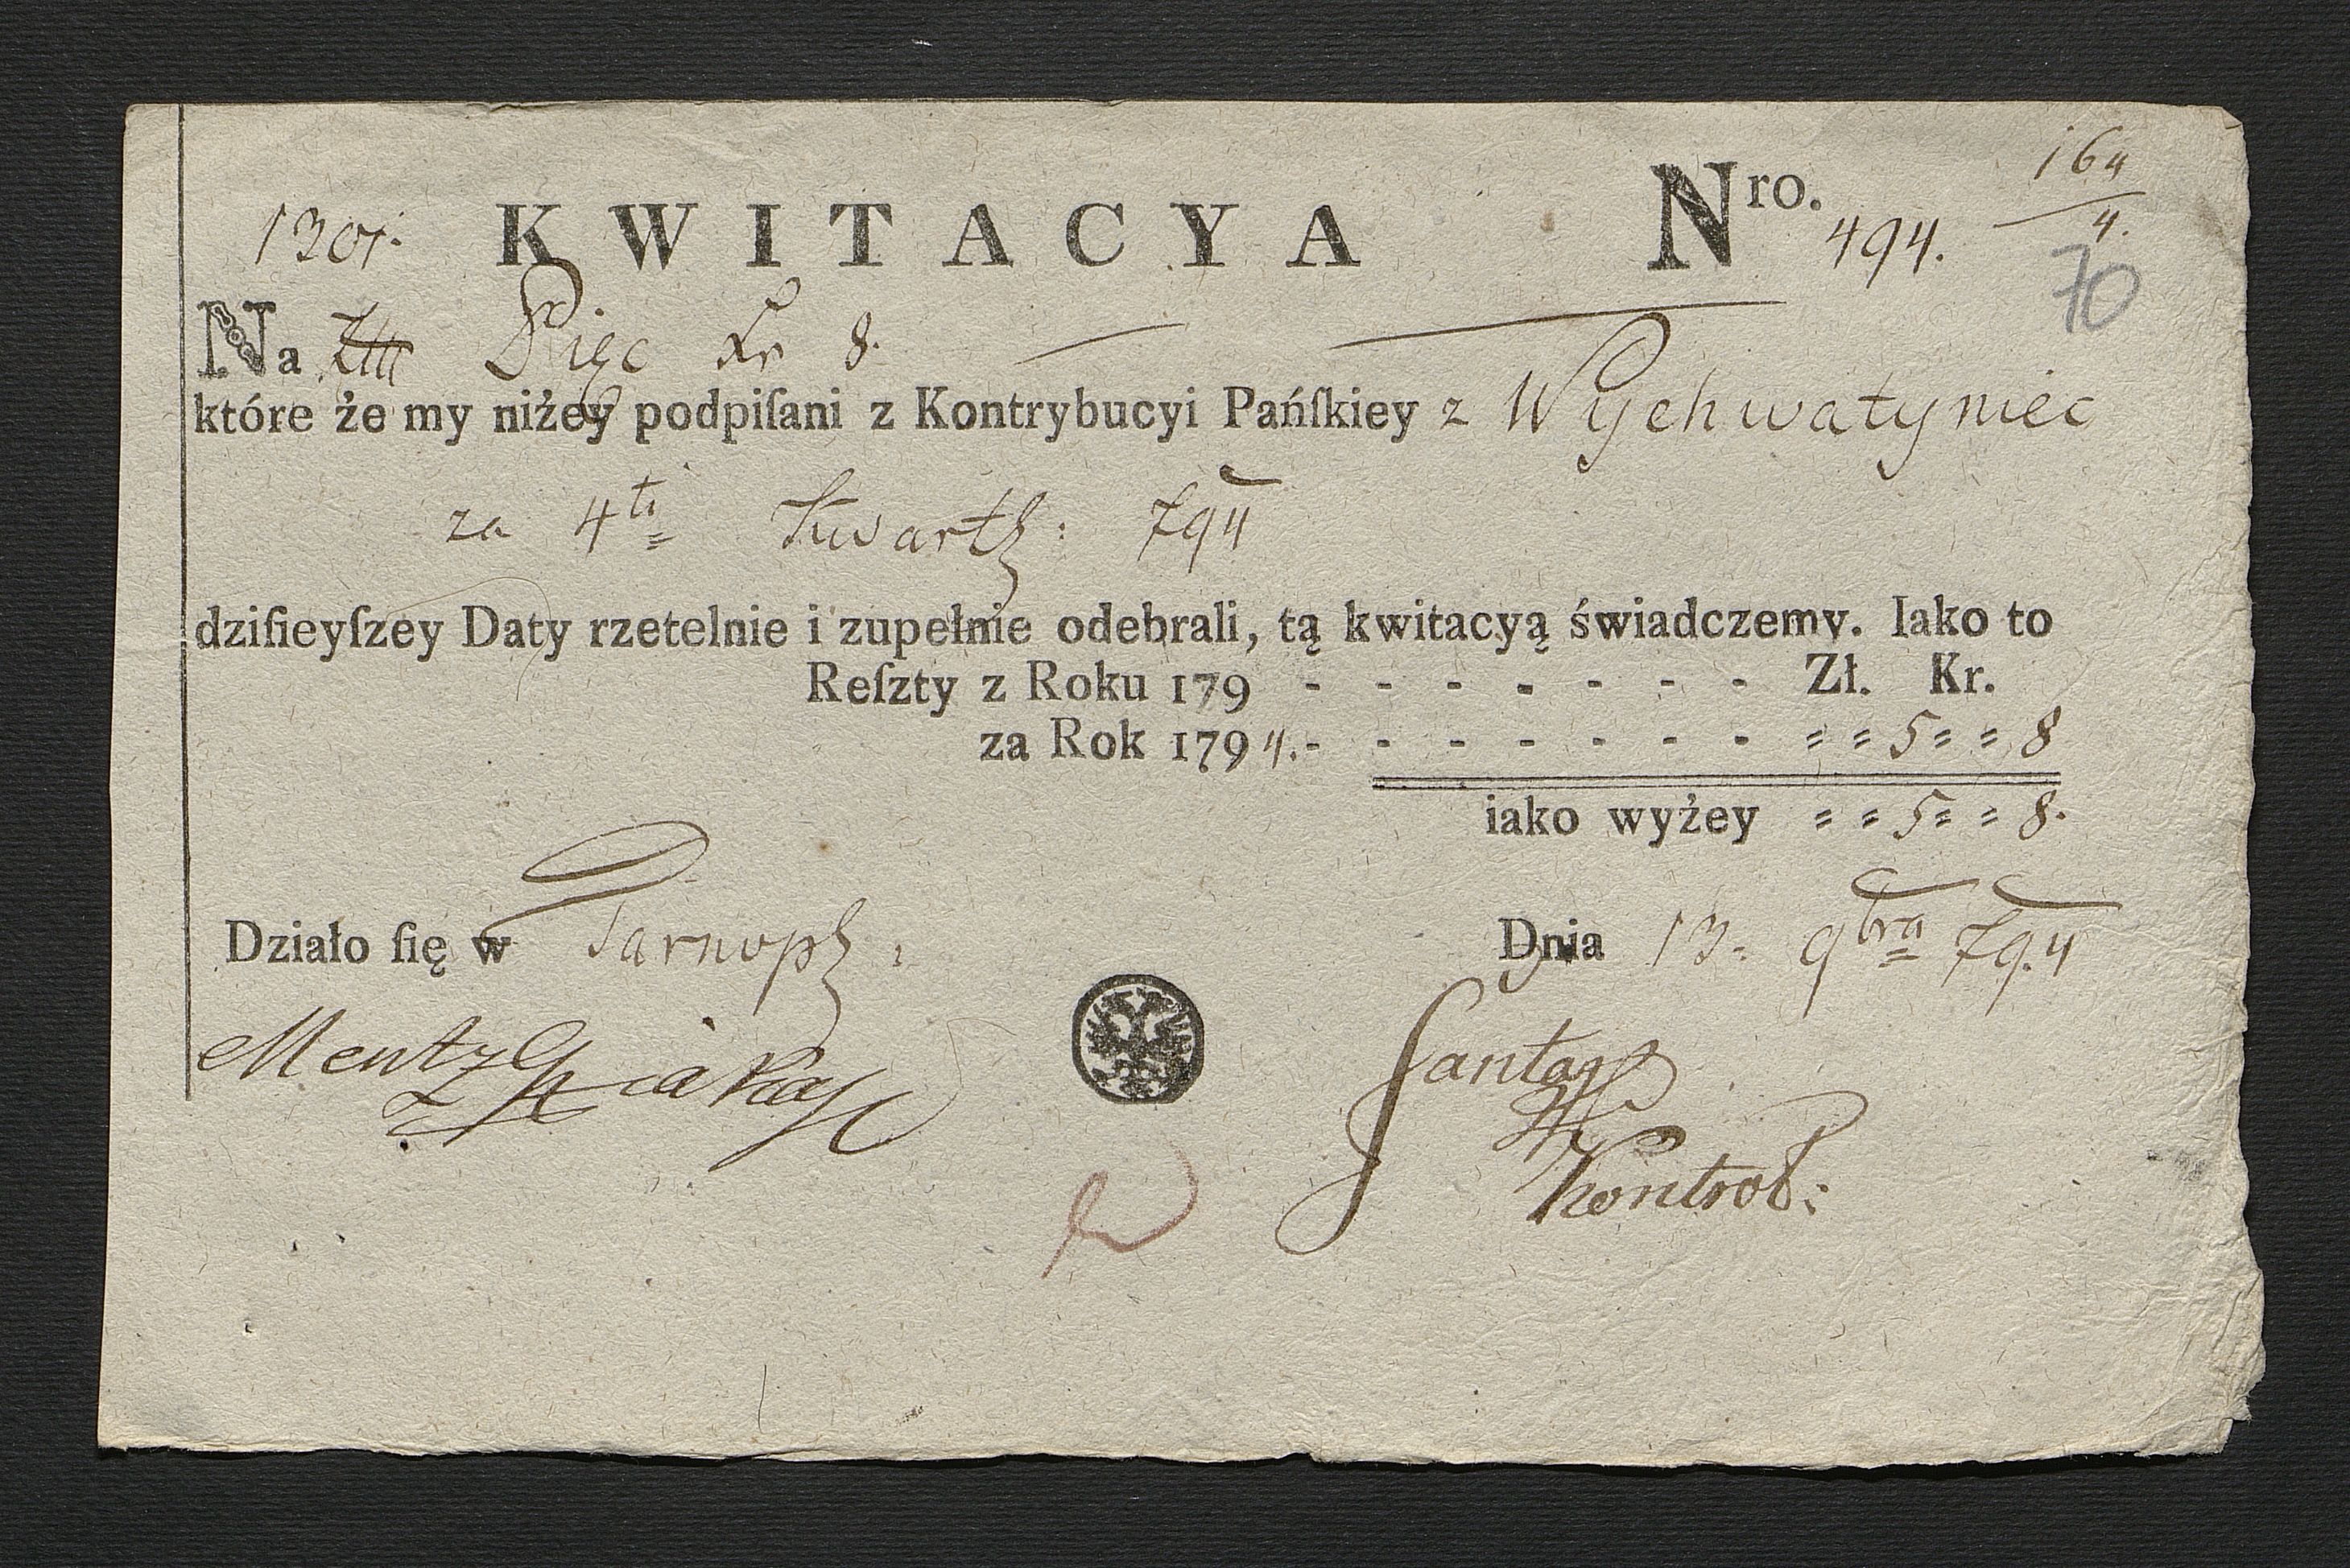 164
4.
KWITACYA Nro. 494.
70
Na Złłł Pięc Kr 8.
które że my niżey podpiſani z Kontrybucyi Pańſkiey z Wychwatyniec
za 4ti Kwartł: 794
dziſieyſzey Daty rzetelnie i zupełnie odebrali, tą kwitacyą świadczemy. Iako to
Reſzty z Roku 179 - - - - - - - Zł. Kr.
za Rok 1794. - - - - - - - 5 8
iako wyżey 5 8.
Działo ſię w Tarnopł: Dnia 13. 9bra 794
Mentz
Kontrol: